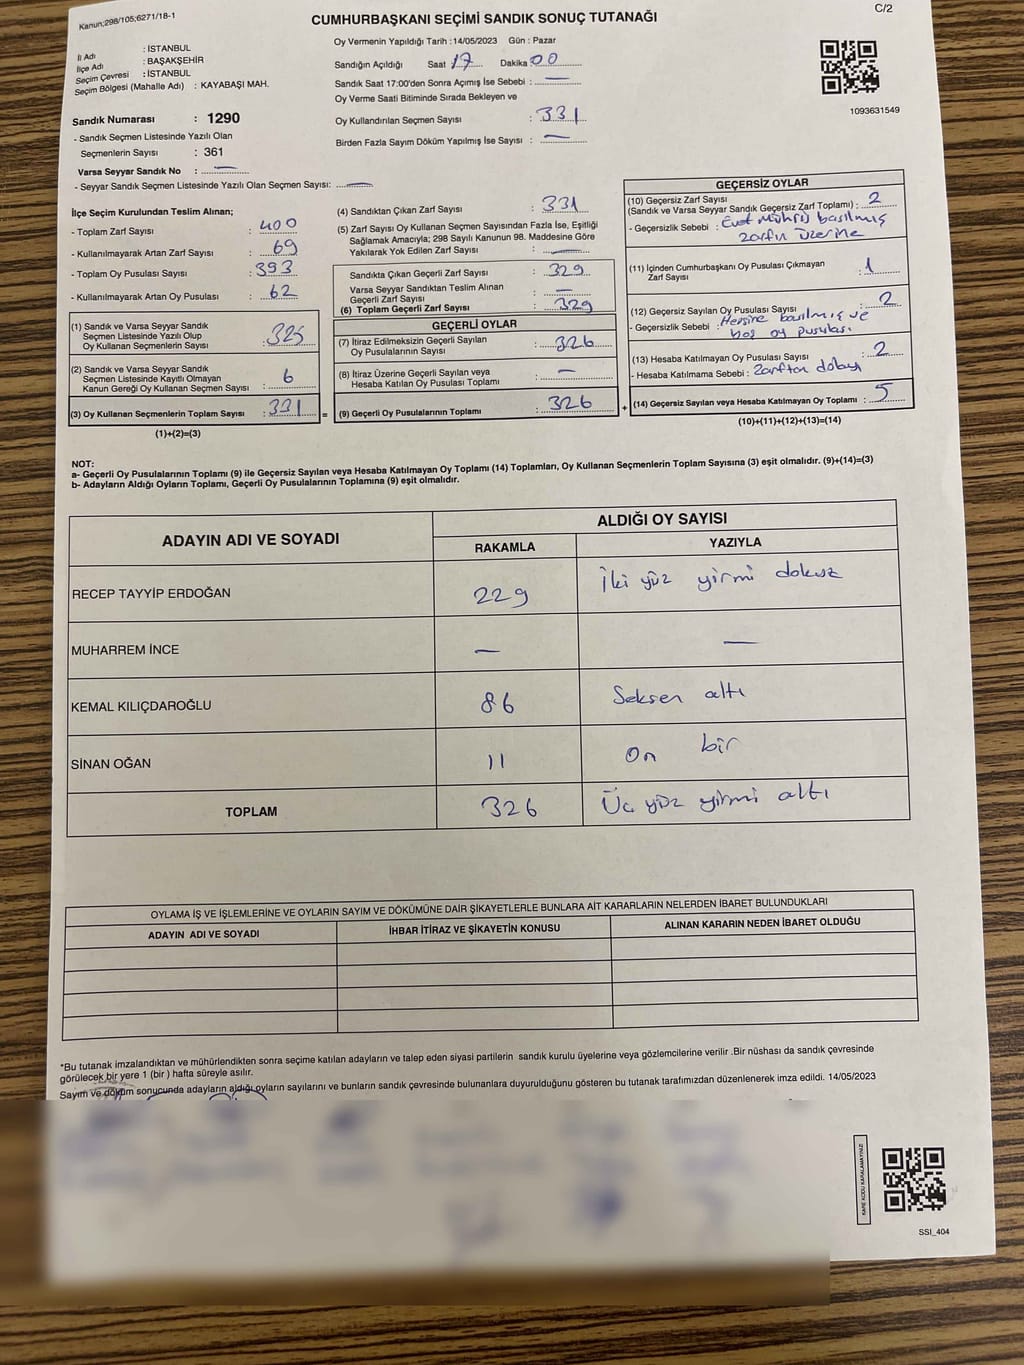 Kanun;298/105;6271/18-1
CUMHURBAŞKANI SEÇİMİ SANDIK SONUÇ TUTANAĞI
C/2
İl Adı : İSTANBUL
İlçe Adı : BAŞAKŞEHİR
Seçim Çevresi : İSTANBUL
Seçim Bölgesi (Mahalle Adı) : KAYABAŞI MAH.
Sandık Numarası : 1290
- Sandık Seçmen Listesinde Yazılı Olan
Seçmenlerin Sayısı : 361
Varsa Seyyar Sandık No : —
- Seyyar Sandık Seçmen Listesinde Yazılı Olan Seçmen Sayısı: —
Oy Vermenin Yapıldığı Tarih : 14/05/2023 Gün : Pazar
Sandığın Açıldığı Saat 17 Dakika 00
Sandık Saat 17:00'den Sonra Açımış İse Sebebi : —
Oy Verme Saati Bitiminde Sırada Bekleyen ve
Oy Kullandırılan Seçmen Sayısı : 331
Birden Fazla Sayım Döküm Yapılmış İse Sayısı : —
1093631549
İlçe Seçim Kurulundan Teslim Alınan;
- Toplam Zarf Sayısı : 400
- Kullanılmayarak Artan Zarf Sayısı : 69
- Toplam Oy Pusulası Sayısı : 393
- Kullanılmayarak Artan Oy Pusulası : 62
(1) Sandık ve Varsa Seyyar Sandık
Seçmen Listesinde Yazılı Olup
Oy Kullanan Seçmenlerin Sayısı : 325
(2) Sandık ve Varsa Seyyar Sandık
Seçmen Listesinde Kayıtlı Olmayan
Kanun Gereği Oy Kullanan Seçmen Sayısı : 6
(3) Oy Kullanan Seçmenlerin Toplam Sayısı : 331 =
(1)+(2)=(3)
(4) Sandıktan Çıkan Zarf Sayısı : 331
(5) Zarf Sayısı Oy Kullanan Seçmen Sayısından Fazla İse, Eşitliği
Sağlamak Amacıyla; 298 Sayılı Kanunun 98. Maddesine Göre
Yakılarak Yok Edilen Zarf Sayısı : —
Sandıkta Çıkan Geçerli Zarf Sayısı : 329
Varsa Seyyar Sandıktan Teslim Alınan
Geçerli Zarf Sayısı : —
(6) Toplam Geçerli Zarf Sayısı : 329
GEÇERLİ OYLAR
(7) İtiraz Edilmeksizin Geçerli Sayılan
Oy Pusulalarının Sayısı : 326
(8) İtiraz Üzerine Geçerli Sayılan veya
Hesaba Katılan Oy Pusulası Toplamı : —
(9) Geçerli Oy Pusulalarının Toplamı : 326 +
GEÇERSİZ OYLAR
(10) Geçersiz Zarf Sayısı
(Sandık ve Varsa Seyyar Sandık Geçersiz Zarf Toplamı) : 2
- Geçersizlik Sebebi : Evet Mührü basılmış
zarfın üzerine
(11) İçinden Cumhurbaşkanı Oy Pusulası Çıkmayan
Zarf Sayısı : 1
(12) Geçersiz Sayılan Oy Pusulası Sayısı : 2
- Geçersizlik Sebebi : basılmış ve
boş oy pusulası
(13) Hesaba Katılmayan Oy Pusulası Sayısı : 2
- Hesaba Katılmama Sebebi : Zarftan dolayı
(14) Geçersiz Sayılan veya Hesaba Katılmayan Oy Toplamı : 5
(10)+(11)+(12)+(13)=(14)
NOT:
a- Geçerli Oy Pusulalarının Toplamı (9) ile Geçersiz Sayılan veya Hesaba Katılmayan Oy Toplamı (14) Toplamları, Oy Kullanan Seçmenlerin Toplam Sayısına (3) eşit olmalıdır. (9)+(14)=(3)
b- Adayların Aldığı Oyların Toplamı, Geçerli Oy Pusulalarının Toplamına (9) eşit olmalıdır.
ADAYIN ADI VE SOYADI
ALDIĞI OY SAYISI
RAKAMLA YAZIYLA
RECEP TAYYİP ERDOĞAN 229 İki yüz yirmi dokuz
MUHARREM İNCE — —
KEMAL KILIÇDAROĞLU 86 Seksen altı
SİNAN OĞAN 11 On bir
TOPLAM 326 Üç yüz yirmi altı
OYLAMA İŞ VE İŞLEMLERİNE VE OYLARIN SAYIM VE DÖKÜMÜNE DAİR ŞİKAYETLERLE BUNLARA AİT KARARLARIN NELERDEN İBARET BULUNDUKLARI
ADAYIN ADI VE SOYADI İHBAR İTİRAZ VE ŞİKAYETİN KONUSU ALINAN KARARIN NEDEN İBARET OLDUĞU
*Bu tutanak imzalandıktan ve mühürlendikten sonra seçime katılan adayların ve talep eden siyasi partilerin sandık kurulu üyelerine veya gözlemcilerine verilir .Bir nüshası da sandık çevresinde
görülecek bir yere 1 (bir ) hafta süreyle asılır.
Sayım ve döküm sonucunda adayların aldığı oyların sayılarını ve bunların sandık çevresinde bulunanlara duyurulduğunu gösteren bu tutanak tarafımızdan düzenlenerek imza edildi. 14/05/2023
KARE KODU KARALAMAYINIZ
SSI_404